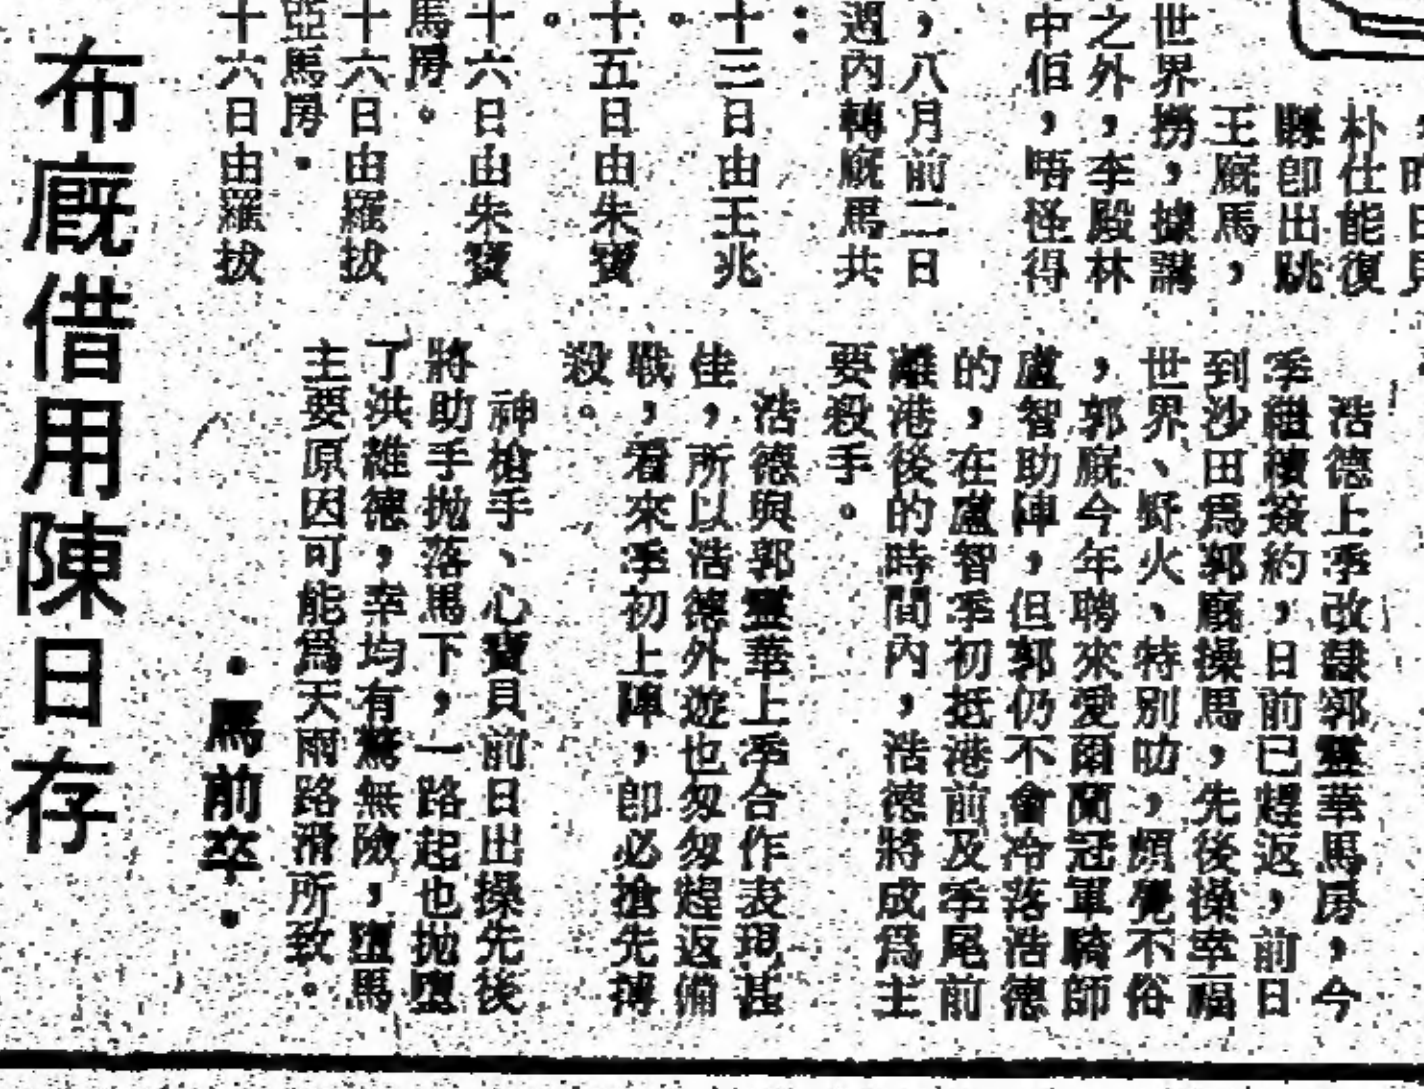 朴仕能復
即出眺
王廐馬，
世界撈，據講
之外，李殿林
中佢，唔怪得
，八月前二日
週內轉廐馬共
：
十三日由王兆
。
十五日由朱寶
。
十六日由朱寶
馬房。
十六日由羅拔
亞馬房。
十六日由羅拔
浩德上季改隸郭靈華馬房，今
季繼續簽約，日前已趕返，前日
到沙田爲郭廐操馬，先後操幸福
世界、野火、特別叻，頗覺不俗
，郭廐今年聘來愛爾蘭冠軍騎師
盧智助陣，但郭仍不會冷落浩德
的，在盧智季初抵港前及季尾前
離港後的時間內，浩德將成爲主
要殺手。
浩德與郭靈華上季合作表現甚
佳，所以浩德外遊也匆匆趕返備
戰，看來季初上陣，即必搶先搏
殺。
神槍手、心寶貝前日出操先後
將助手拋落馬下，一路起也拋墮
了洪維德，幸均有驚無險，墮馬
主要原因可能爲天雨路滑所致。
・馬前卒・
布廐借用陳日存